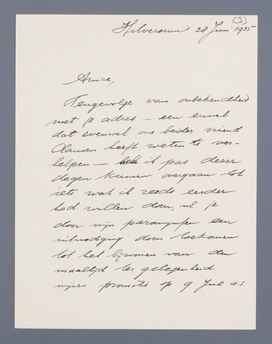 (3)
Hilversum 28 Juni 1935
Amice,
Tengevolge van onbekendheid
met je adres – een euvel
dat evenwel ons beider vriend
Clausen heeft weten te ver-
helpen – heb ik pas dezer
dagen kunnen overgaan tot
iets wat ik reeds eerder
had willen doen, nl. je
door mijn paranymfen een
uitnoodiging doen toekomen
tot het bijwonen van den
maaltijd ter gelegenheid
mijner promotie op 9 Juli a.s.